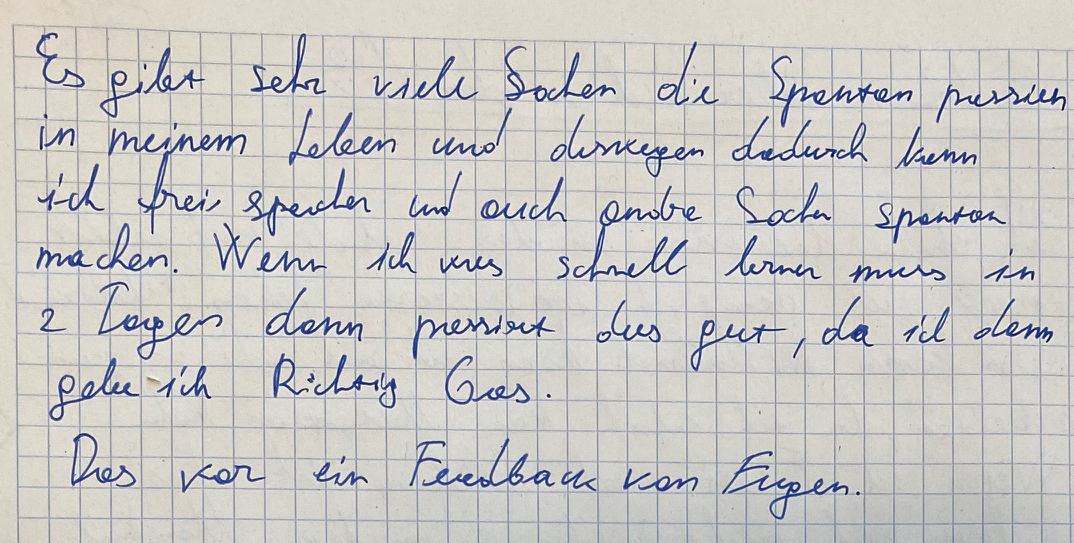 Es gibt sehr viele Sachen die Spontan passien
in meinem Leben und deswegen dadurch kann
ich frei sprechen und auch andre Sachen spontan
machen. Wenn ich was schnell lernen muss in
2 Tagen dann passiert das gut, da ich dann
gebe ich Richtig Gas.
Das var ein Feedback von Eugen.